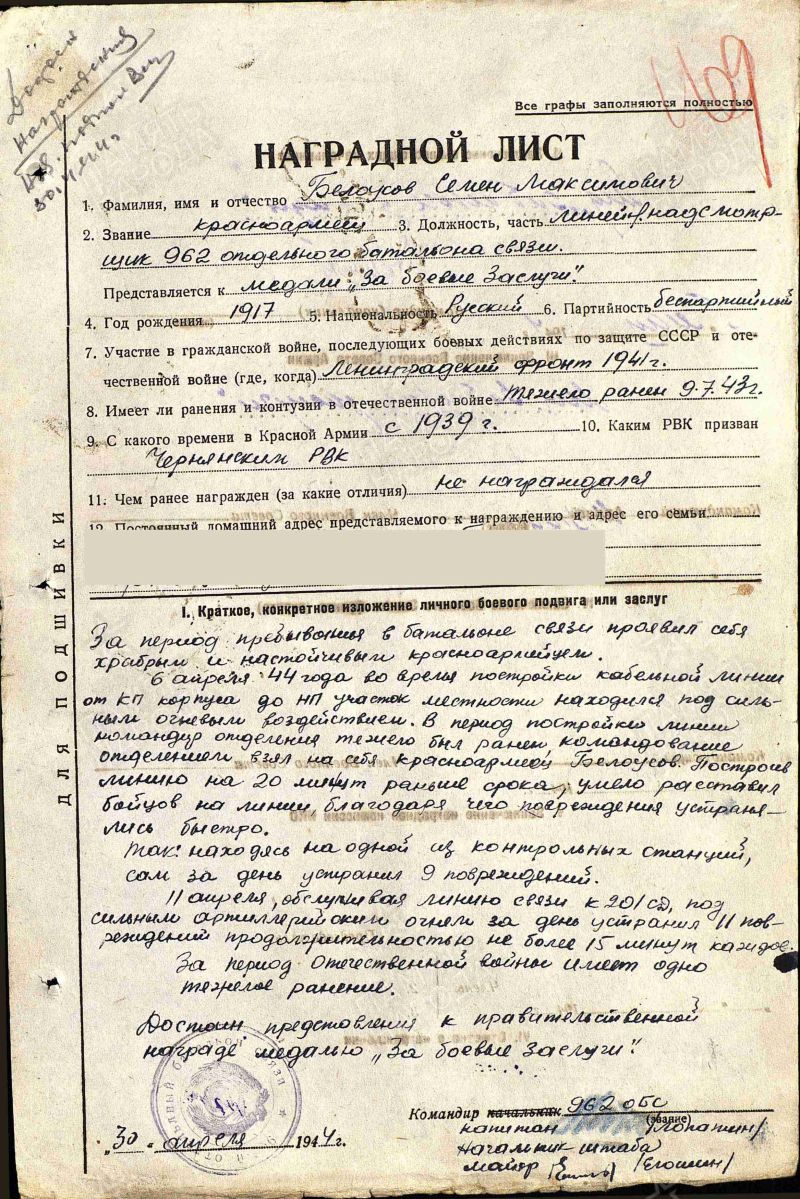 Достоин
награждения
30.4.44 г
469
Все графы заполняются полностью
НАГРАДНОЙ ЛИСТ
1. Фамилия, имя и отчество Белоусов Семен Максимович
2. Звание красноармеец 3. Должность, часть линейн. надсмотр-
щик 962 отдельного батальона связи.
Представляется к медали „За боевые заслуги".
4. Год рождения 1917 5. Национальность Русский 6. Партийность беспартийный
7. Участие в гражданской войне, последующих боевых действиях по защите СССР и оте-
чественной войне (где, когда) Ленинградский фронт 1941 г.
8. Имеет ли ранения и контузии в отечественной войне тяжело ранен 9.7.43 г.
9. С какого времени в Красной Армии с 1939 г. 10. Каким РВК призван
Чернянским РВК
11. Чем ранее награжден (за какие отличия) не награждался
12. Постоянный домашний адрес представляемого к награждению и адрес его семьи
ДЛЯ ПОДШИВКИ
I. Краткое, конкретное изложение личного боевого подвига или заслуг
За период пребывания в батальоне связи проявил себя
храбрым и настойчивым красноармейцем.
6 апреля 44 года во время постройки кабельной линии
от КП корпуса до НП участок местности находился под силь-
ным огневым воздействием. В период постройки линии
командир отделения тяжело был ранен, командование
отделением взял на себя красноармеец Белоусов. Построив
линию на 20 минут раньше срока, умело расставил
бойцов на линии, благодаря чего повреждения устраня-
лись быстро.
Так: находясь на одной из контрольных станций,
сам за день устранил 9 повреждений.
11 апреля, обслуживая линию связи к 201 сд, под
сильным артиллерийским огнем за день устранил 11 пов-
реждений продолжительностью не более 15 минут каждое.
За период Отечественной войны имеет одно
тяжелое ранение.
Достоин представления к правительственной
награде медалью „За боевые заслуги".
Командир начальник 962 обс
(звание)
капитан /Лопатин/
Начальник штаба
майор /Егошин/
„30" апреля 1944 г.